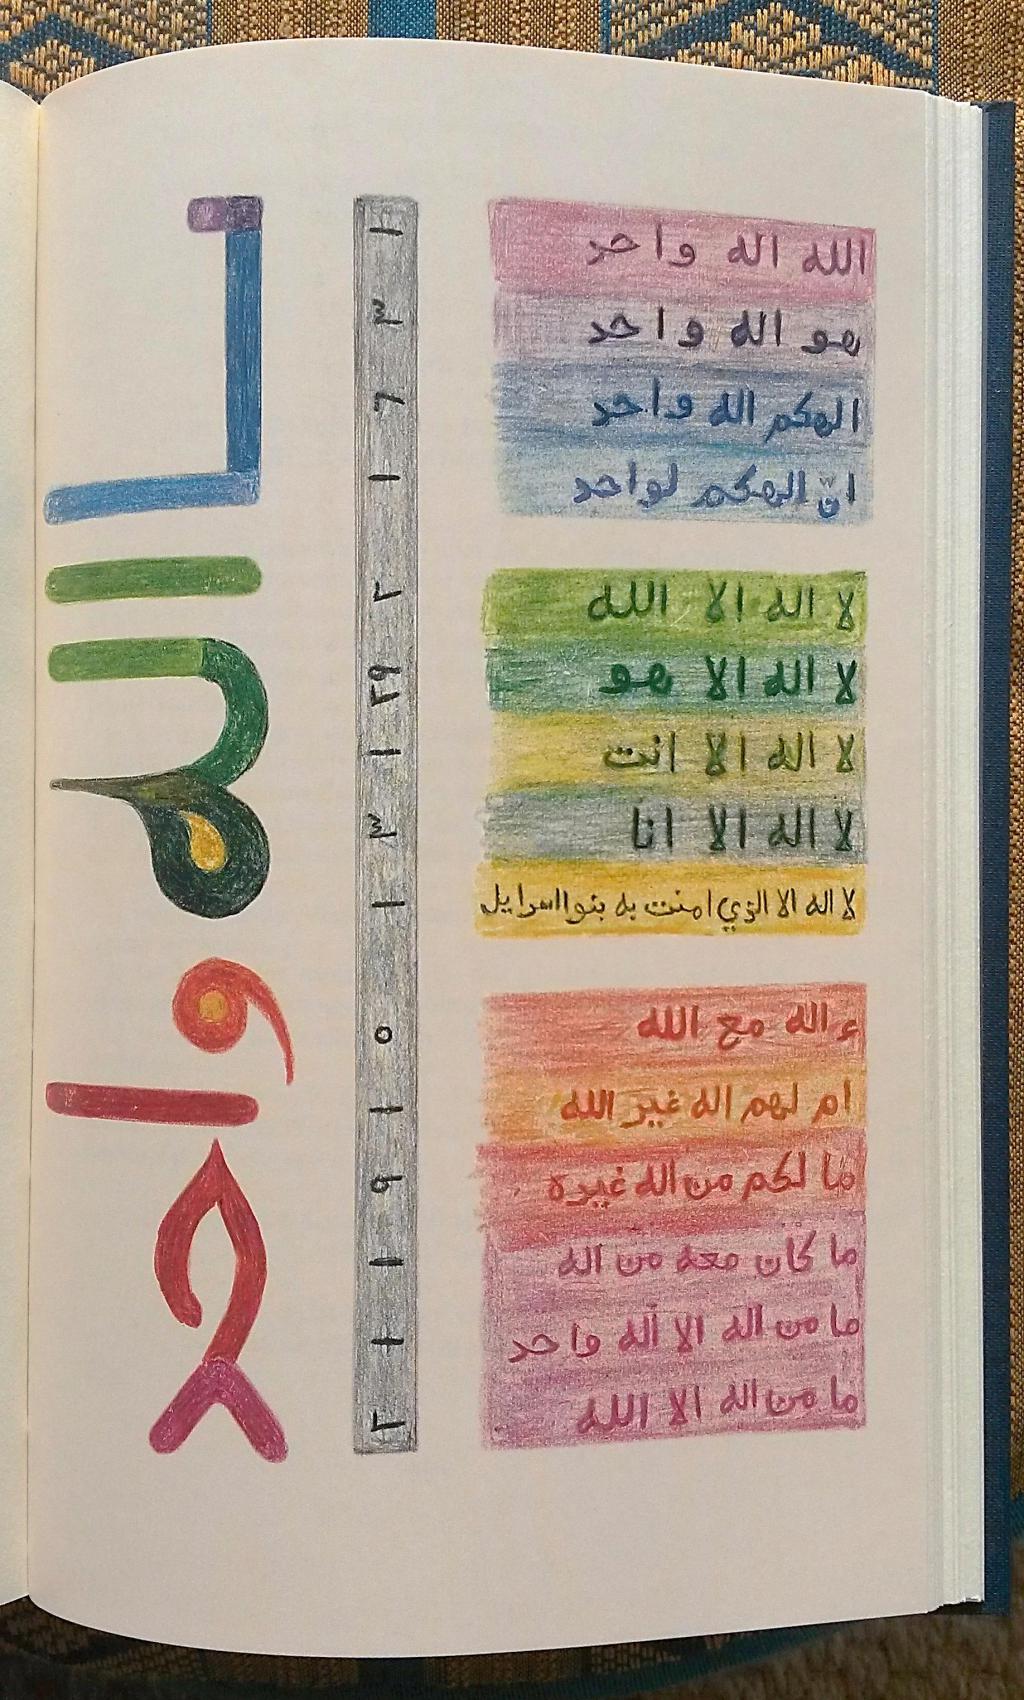 الله اله واحد
هو اله واحد
الهكم اله واحد
انّ الهكم لواحد
لا اله الا الله
لا اله الا هو
لا اله الا انت
لا اله الا انا
لا اله الا الذي امنت به بنوا اسرايل
ء اله مع الله
ام لهم اله غير الله
ما لكم من اله غيره
ما كان معه من اله
ما من اله الا اله واحد
ما من اله الا الله
١
٣
٦
١
٢
٢٩
١
٣
١
٥
١
٩
١
١
٢